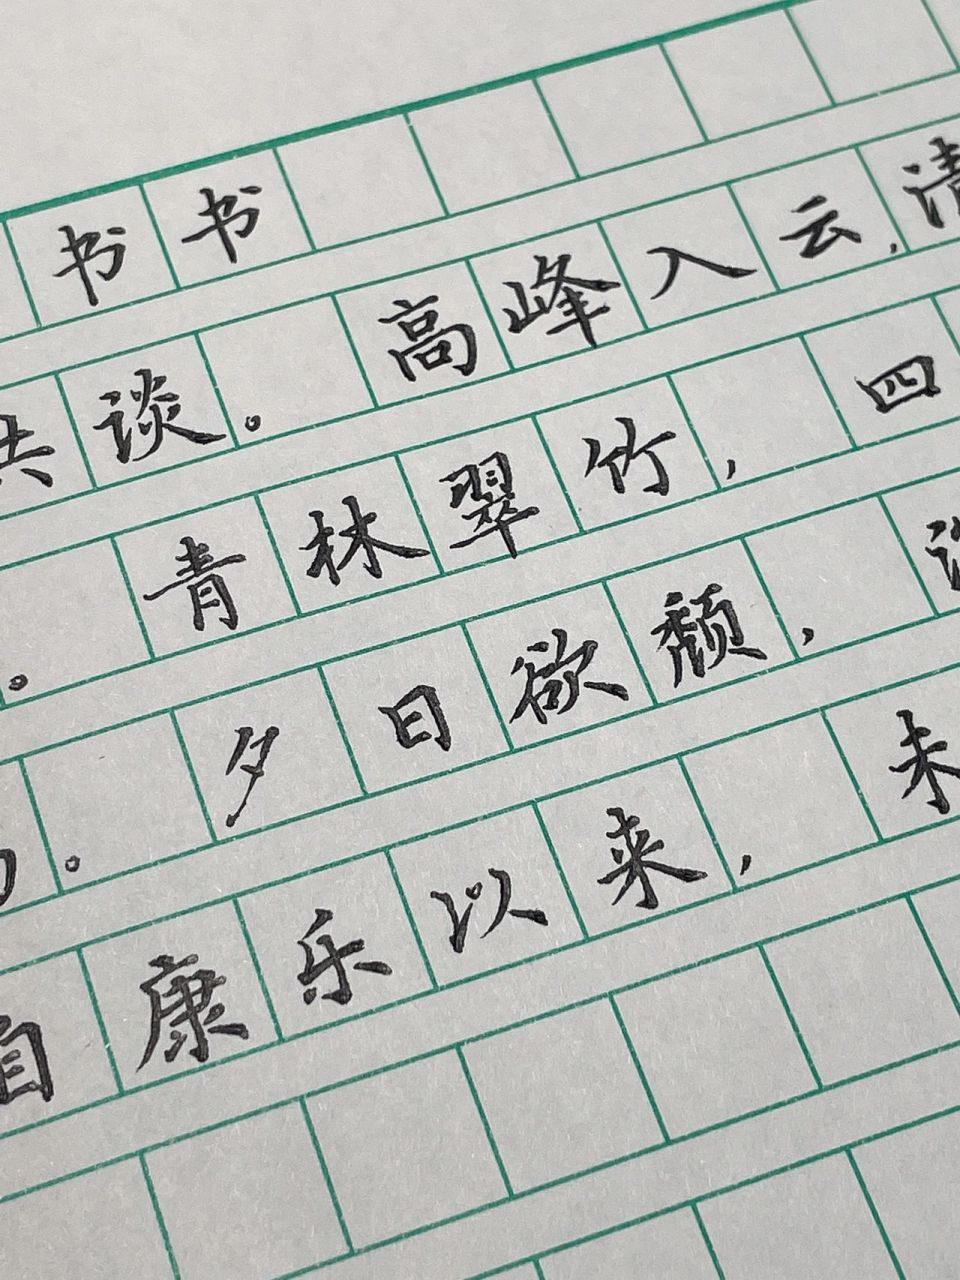 书书
共谈。高峰入云,清
。青林翠竹,四
。夕日欲颓,
自康乐以来,未